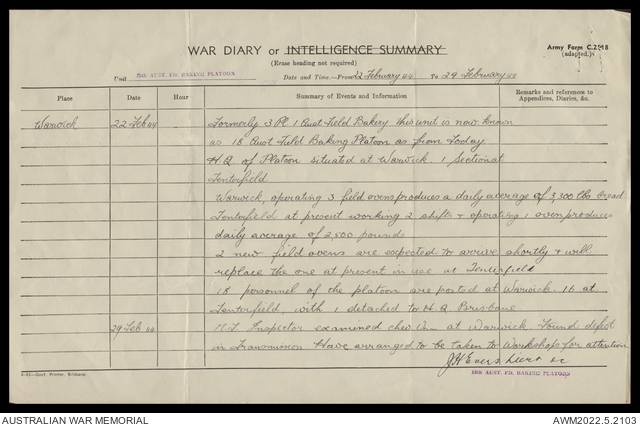 WAR DIARY or INTELLIGENCE SUMMARY
Army Form C.2118
(adapted.)
(Erase heading not required)
Unit 18th AUST. FD. BAKING PLATOON Date and Time—From 22 February 44 To 29 February 44
Place Date Hour Summary of Events and Information Remarks and references to Appendices, Diaries, &c.
Warwick 22 Feb 44 Formerly 3 Pl 1 Aust Field Bakery this unit is now known
as 18 Aust Field Baking Platoon as from today
H.Q of Platoon situated at Warwick. 1 Section at
Tenterfield
Warwick, operating 3 field ovens produces a daily average of 3,300 lbs bread
Tenterfield at present working 2 shifts & operating 1 oven produces
daily average of 2,500 pounds
2 new field ovens are expected to arrive shortly & will
replace the one at present in use at Tenterfield
18 personnel of the platoon are posted at Warwick. 16 at
Tenterfield, with 1 detached to H Q Brisbane
29 Feb 44 Inspector examined chev Van at Warwick. Found defect
in transmission Have arranged to be taken to Workshops for attention
J H Evers Lieut oc
18th AUST. FD. BAKING PLATOON
Govt. Printer, Brisbane.
AUSTRALIAN WAR MEMORIAL
AWM2022.5.2103